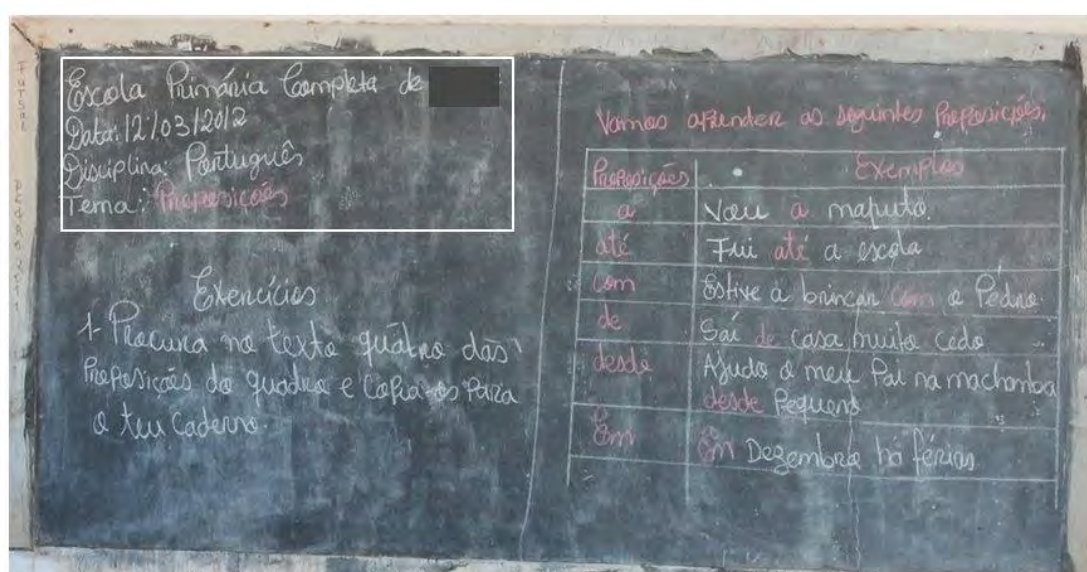 Escola Primária Completa de
Data: 12/03/2012
Disciplina: Português
Tema: Preposições
Exercícios
1- Procura no texto quátro das
Preposições do quadro e copia-os para
o teu caderno.
Vamos aprender as seguintes Preposições.
Preposições Exemplos
a Vou a maputo.
até Fui até a escola
com Estive a brincar com o Pedro
de Saí de casa muito cedo
desde Ajudo o meu Pai na machamba
desde Pequeno
Em Em Dezembro há férias